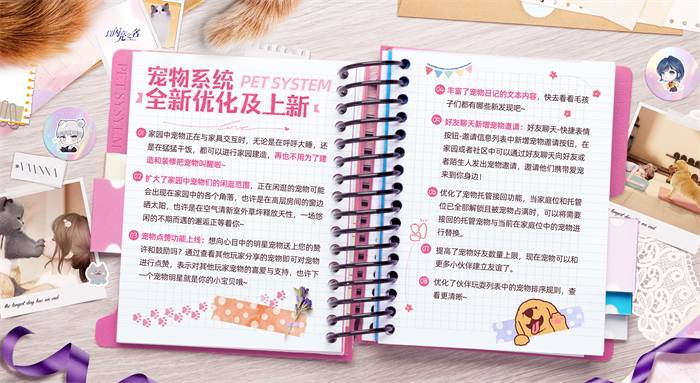 以闪亮之名
PET SYSTEM
宠物系统
PET SYSTEM
全新优化及上新
01 家园中宠物正在与家具交互时，无论是在呼呼大睡，还
是在猛猛干饭，都可以进行家园建造，再也不用为了建
造和装修把宠物叫醒啦~
02 扩大了家园中宠物们的闲逛范围，正在闲逛的宠物可能
会出现在家园中的各个角落，也许是在高层房间的窗边
晒太阳，也许是在空气清新室外草坪释放天性，一场悠
闲的不期而遇的邂逅正等着你~
03 宠物点赞功能上线：想向心目中的明星宠物送上您的赞
许和鼓励吗？通过查看其他玩家分享的宠物即可对宠物
进行点赞，表示对其他玩家宠物的喜爱与支持，也许下
一个宠物明星就是你的小宝贝哦~
04 丰富了宠物日记的文本内容，快去看看毛孩
子们都有哪些新发现吧~
05 好友聊天新增宠物邀请：好友聊天-快捷表情
按钮-邀请信息列表中新增宠物邀请按钮，在
家园或者社区中可以通过好友聊天向好友或
者陌生人发出宠物邀请，邀请他们携带爱宠
来到你身边！
06 优化了宠物托管接回功能，当家庭位和托管
位已全部解锁且被宠物占满时，可以将需要
接回的托管宠物与当前在家庭位中的宠物进
行替换。
07 提高了宠物好友数量上限，现在宠物可以和
更多小伙伴建立友谊了。
08 优化了伙伴玩耍列表中的宠物排序规则，查
看更清晰~